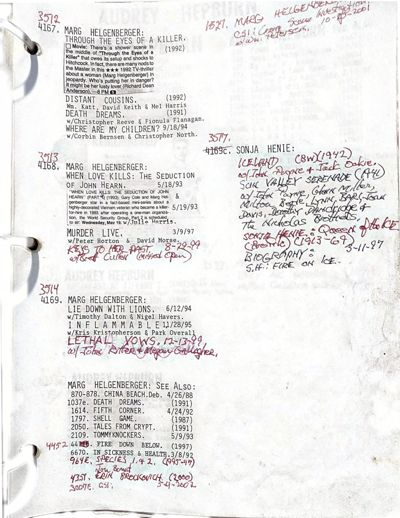 3512
4167. MARG HELGENBERGER:
THROUGH THE EYES OF A KILLER.
(1992)
Movie: There's a shower scene in
the middle of "Through the Eyes of a
Killer" that owes its setup and shocks to
Hitchcock. In fact, there are many nods to
the Master in this ★★★ 1992 TV-thriller
about a woman (Marg Helgenberger) in
jeopardy. Who's putting her in danger?
It might be her lusty lover (Richard Dean
Anderson).
DISTANT COUSINS. (1992)
Wm. Katt, David Keith & Mel Harris
DEATH DREAMS. (1991)
w/Christopher Reeve & Fionula Flanagan.
WHERE ARE MY CHILDREN? 9/18/94
w/Corbin Bernsen & Christopher North.
3513
4168. MARG HELGENBERGER:
WHEN LOVE KILLS: THE SEDUCTION
OF JOHN HEARN. 5/18/93
"WHEN LOVE KILLS: THE SEDUCTION OF
JOHN HEARN"
5/19/93
w/Julie Harris.
MURDER LIVE. 3/9/97
w/Peter Horton & David Morse.
KEYS TO HER PAST 8-29-99
3514
4169. MARG HELGENBERGER:
LIE DOWN WITH LIONS. 6/12/94
w/Timothy Dalton & Nigel Havers.
INFLAMMABLE 11/28/95
w/Kris Kristopherson & Park Overall
LETHAL VOWS. 12-13-99
w/ John Ritter & Megan Gallagher.
MARG HELGENBERGER: SEE ALSO:
870-878. CHINA BEACH.Deb. 4/26/88
1037e. DEATH DREAMS. (1991)
1614. FIFTH CORNER. 4/24/92
1797. SHELL GAME. (1987)
2050. TALES FROM CRYPT. (1991)
2109. TOMMYKNOCKERS. 5/9/93
4452 FIRE DOWN BELOW. (1997)
6670. IN SICKNESS & HEALTH.3/8/92
964E. SPECIES 1 & 2. (1995-99)
4351. ERIN BROCKOVICH (2000)
CSI.
1521. MARG HELGENBERGER
CSI: Crime Scene Investigation
w/Wm. Petersen.
3577.
4169c. SONJA HENIE:
ICELAND (BW)(1942)
w/ John Payne & Jack Oakie.
SUN VALLEY SERENADE (1941)
w/ John Payne, Glenn Miller,
Milton Berle, Lynn Bari, Joan
Davis, Dorothy Dandridge &
The Nicholas Brothers.
SONJA HENIE: QUEEN OF THE ICE
(1913-69)
BIOGRAPHY: 3-11-97
S.H. FIRE ON ICE.